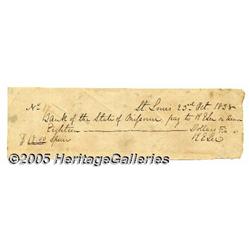 No St. Louis 25th Oct 1838
Bank of the State of Missouri, pay to R E Lee or
Eighteen Dollars
$ 18.00 R E Lee
©2005 HeritageGalleries